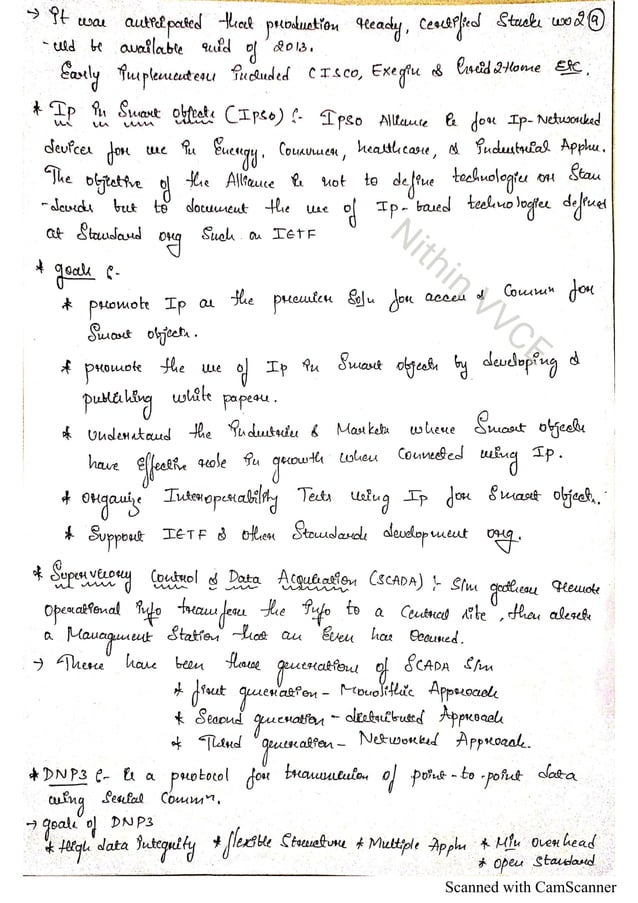 → It was anticipated that production ready, certified Stacks wo 2 9
-uld be available mid of 2013.
Early Implementers Included CISCO, Exegin & Grid2Home Etc.
* Ip In Smart objects (Ipso) :- Ipso Alliance is for Ip-Networked
devices for use in Energy, Consumer, healthcare, & Industrial Appln.
The objective of the Alliance is not to define technologies or Stan
-dards but to document the use of Ip-based technologies defined
at Standard org Such as IETF
* goals :-
* promote Ip as the premier Soln for access & Commn for
Smart objects.
* promote the use of Ip in Smart objects by developing &
publishing white papers.
* understand the Industries & Markets where Smart objects
have Effective role in growth when Connected using Ip.
* organize Interoperability Tests using Ip for Smart objects.
* Support IETF & other Standards development org.
* Supervisory Control & Data Acquisition (SCADA) :- S/m gathers remote
operational Info transfers the Info to a Central site, then alerts
a Management Station that an Even has Occurred.
→ There have been three generations of SCADA S/m
* first generation - Monolithic Approach
* Second generation - distributed Approach
* Third generation - Networked Approach.
* DNP3 :- is a protocol for transmission of point-to-point data
using Serial Commn.
→ goals of DNP3
* High data Integrity * flexible Structure * Multiple Appln * Min overhead
* open Standard
Nithin VVCE
Scanned with CamScanner